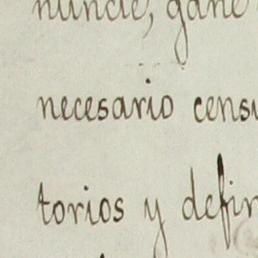 nuncie, gane
necesario censu
torios y defin